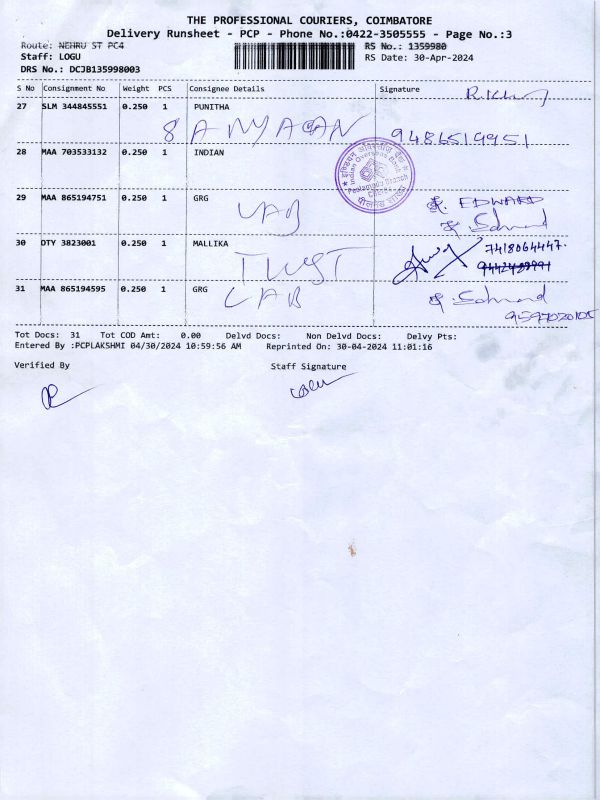 THE PROFESSIONAL COURIERS, COIMBATORE
Delivery Runsheet - PCP - Phone No.:0422-3505555 - Page No.:3
Route: NEHRU ST PC4 RS No.: 1359980
Staff: LOGU RS Date: 30-Apr-2024
DRS No.: DCJB135998003
S No Consignment No Weight PCS Consignee Details Signature
27 SLM 344845551 0.250 1 PUNITHA
9486519951
28 MAA 703533132 0.250 1 INDIAN
Indian Overseas Bank
Peelamedu Branch
29 MAA 865194751 0.250 1 GRG EDWARD
LAB
30 DTY 3823001 0.250 1 MALLIKA 7418064447.
TRUST
31 MAA 865194595 0.250 1 GRG
LAB
9597020105
Tot Docs: 31 Tot COD Amt: 0.00 Delvd Docs: Non Delvd Docs: Delvy Pts:
Entered By :PCPLAKSHMI 04/30/2024 10:59:56 AM Reprinted On: 30-04-2024 11:01:16
Verified By Staff Signature